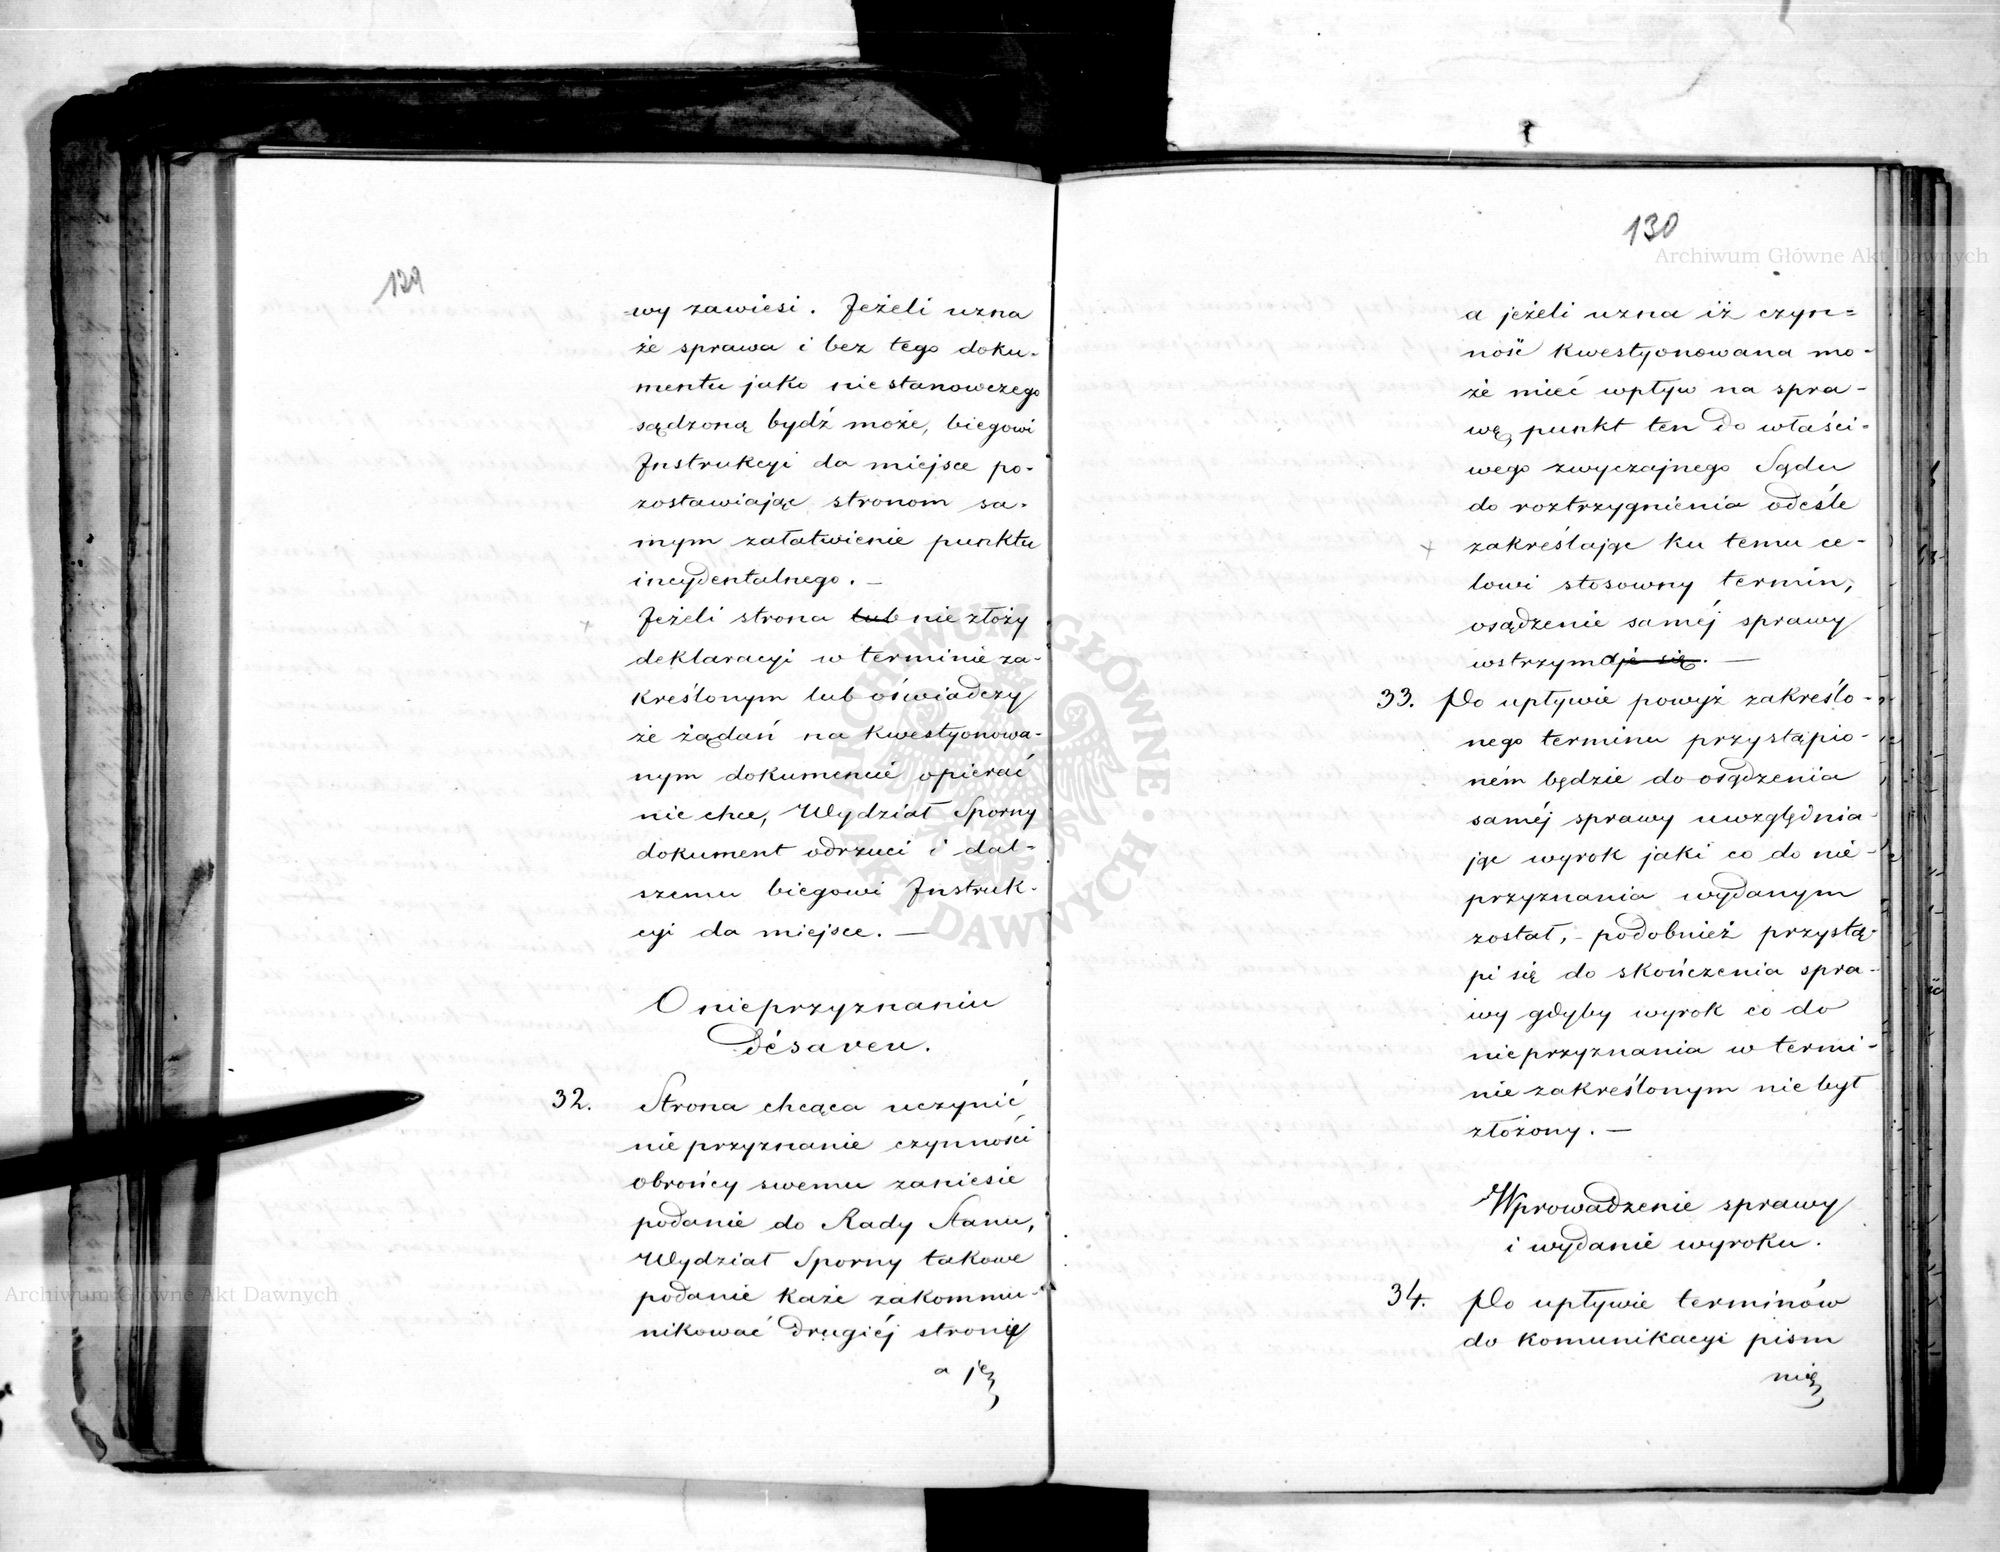 129
wy zawiesi. Jeżeli uzna
że sprawa i bez tego doku-
mentu jako nie stanowczego
sądzoną bydź może, biegowi
Instrukcyi da miejsce po-
zostawiając stronom sa-
mym załatwienie punktu
incydentalnego. —
Jeżeli strona lub nie złoży
deklaracyi w terminie za-
kreślonym lub oświadczy
że żądań na kwestyonowa-
nym dokumencie opierać
nie chce, Wydział Sporny
dokument odrzuci i dal-
szemu biegowi Instruk-
cyi da miejsce. —
O nieprzyznaniu
désaveu.
32. Strona chcąca uczynić
nieprzyznanie czynności
obrońcy swemu zaniesie
podanie do Rady Stanu,
Wydział Sporny takowe
podanie każe zakommu-
nikować drugiéj stronie
a je
130
a jeżeli uzna iż czyn=
ność kwestyonowana mo-
że mieć wpływ na spra-
wę, punkt ten do właści-
wego zwyczajnego Sądu
do roztrzygnienia odeśle
zakreślając ku temu ce-
lowi stosowny termin,
osądzenie saméj sprawy
wstrzymaje się. —
33. Po upływie powyż zakreślo-
nego terminu przystąpio-
ném będzie do osądzenia
saméj sprawy uwzględnia-
jąc wyrok jaki co do nie-
przyznania wydanym
został, - podobnież przystą-
pi się do skończenia spra-
wy gdyby wyrok co do
nieprzyznania w termi-
nie zakreślonym nie był
złożony. —
Wprowadzenie sprawy
i wydanie wyroku.
34. Po upływie terminów
do komunikacyi pism
nie
Archiwum Główne Akt Dawnych
Archiwum Główne Akt Dawnych
ARCHIWUM GŁÓWNE · AKT DAWNYCH ·